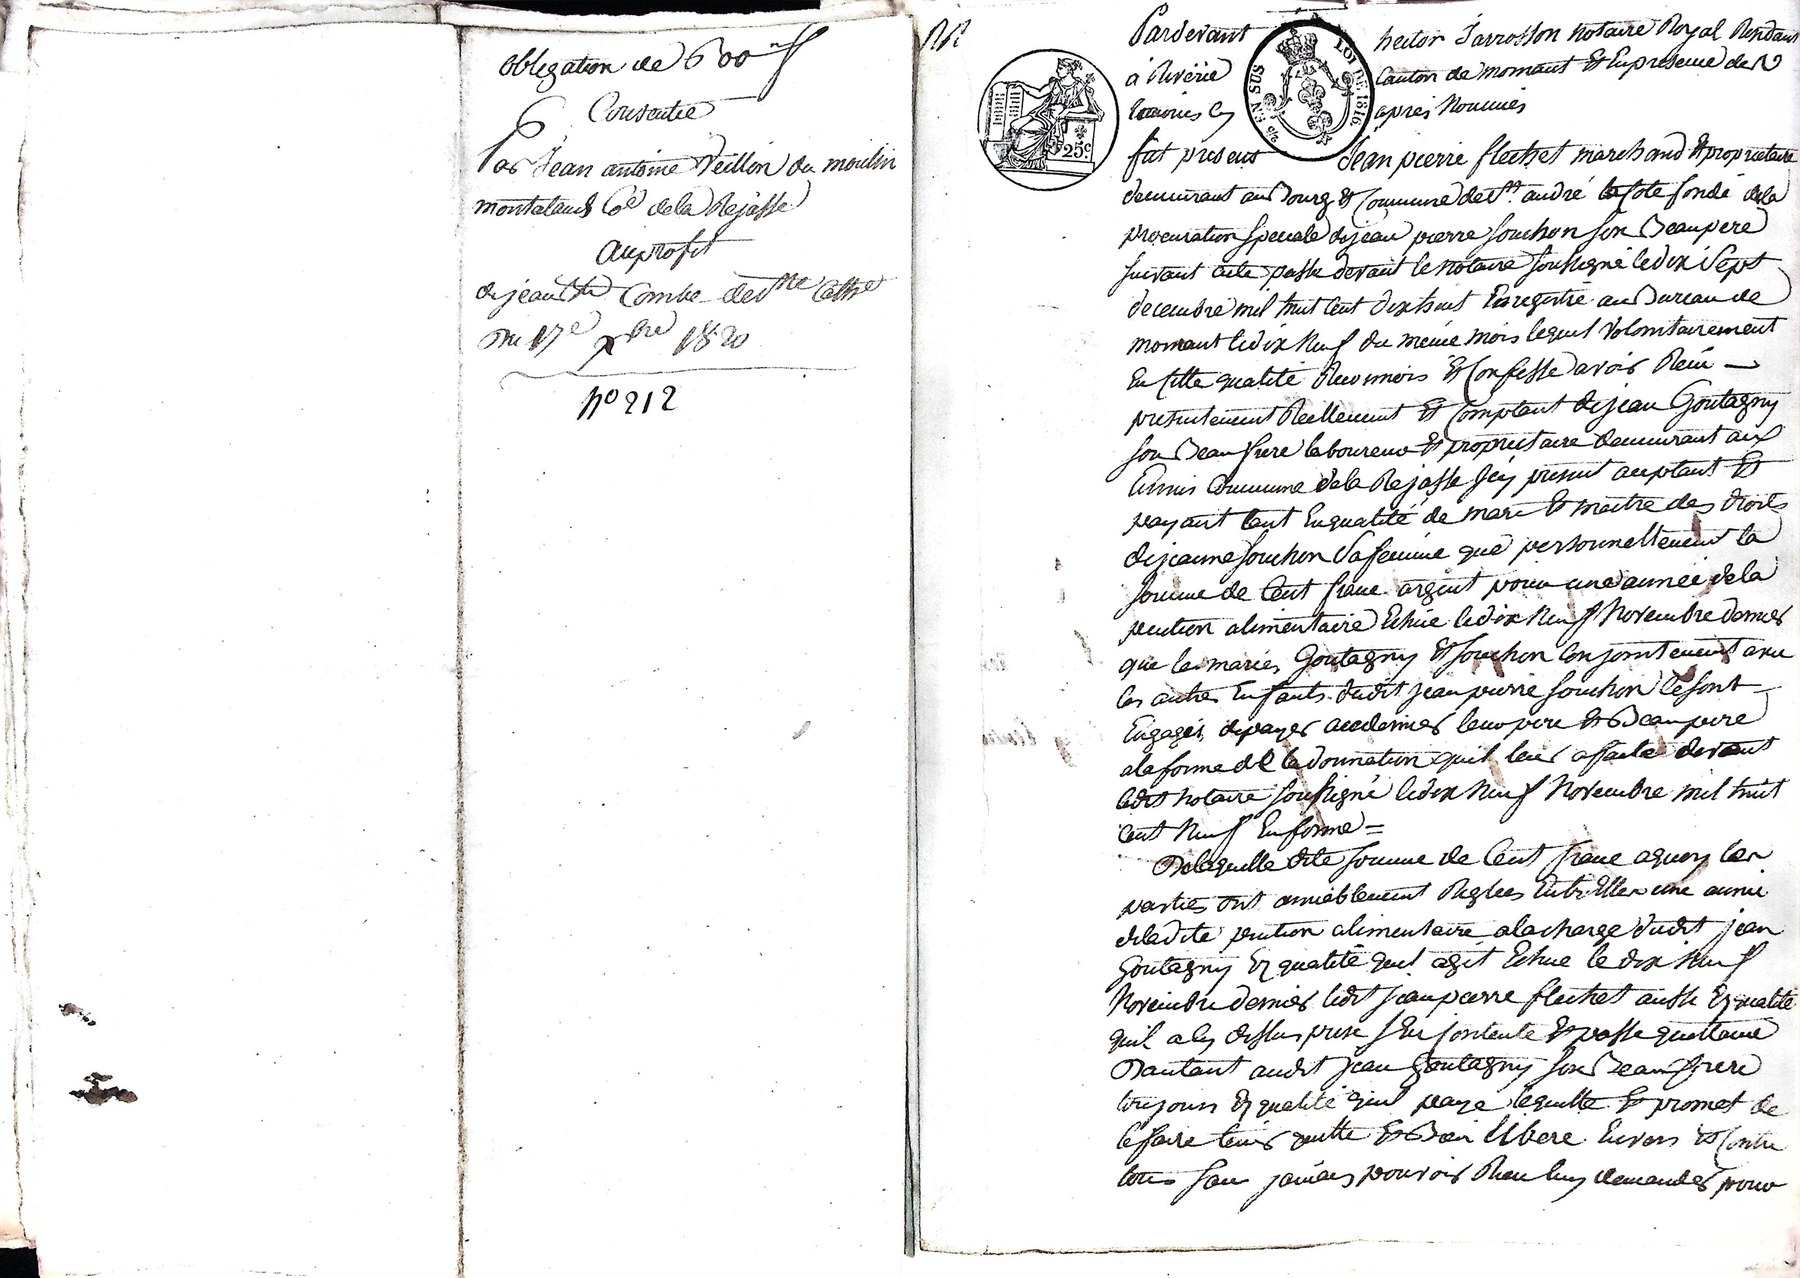 obligation de 600 f
Consentie
Par Jean antoine Veillon du moulin
montaland Coe de la Rajasse
au profit
de jean Combe de Ste Cathe
Du 17e xbre 1820
No 212
Pardevant hector Jarrosson notaire Royal Résidant
à Riverie Canton de mornant Et En présence des
témoins Cy après Nommés
fut présent Jean pierre flechet marchand & propriétaire
demeurant au Bourg & Commune de St andré la Cote fondé de la
procuration Spéciale de jean pierre Souchon Son Beaupere
Suivant acte passé devant le notaire Soussigné le dix Sept
decembre mil huit Cent dix huit Enregistré au Bureau de
mornant le dix Neuf du même mois lequel Volontairement
En cette qualité Reconnois & Confesse avoir Reçu
présentement Réellement Et Comptant de jean Goutagny
Son Beaufrere laboureur & propriétaire demeurant aux
Commune de la Rajasse Icy présent acceptant Et
payant tant En qualité de mari & maitre des droits
de jeanne Souchon Sa femme que personnellement la
Somme de Cent franc argent pour une année de la
pention alimentaire Echue le dix Neuf Novembre dernier
que les mariés Goutagny & Souchon Conjointement avec
les autres Enfants dudit jean pierre Souchon Se sont
Engagés de payer a ce dernier leur pere & Beaupere
a la forme de la donnation quil leur a faite devant
ledit notaire Soussigné le dix Neuf Novembre mil huit
Cent Neuf En forme =
De laquelle dite Somme de Cent franc a quoy les
parties ont amiablement Reglées une année
de la dite pention alimentaire a la charge dudit jean
Goutagny Ez qualité quil agit Echue le dix Neuf
Novembre dernier ledit jean pierre flechet aussi Ez qualité
quil a cy dessus prise Sen Contente & passe quittance
Dautant audit jean Goutagny Son Beaufrere
toujours Ez qualité quil paye lequitte & promet de
le faire tenir quitte & Bien libere Envers & Contre
tous Sans jamais pouvoir Rien luy demander pour